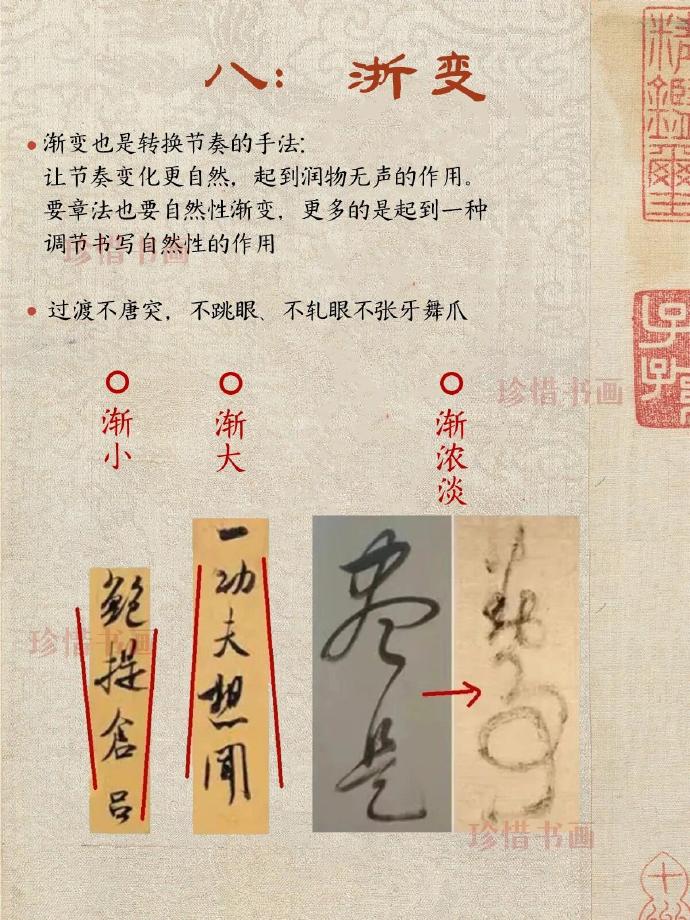 八：渐变
渐变也是转换节奏的手法：
让节奏变化更自然，起到润物无声的作用。
要章法也要自然性渐变，更多的是起到一种
调节书写自然性的作用
过渡不唐突，不跳眼、不轧眼不张牙舞爪
渐小
渐大
渐浓淡
鲍提仓吕
一功夫想闻
珍惜书画
珍惜书画
珍惜书画
珍惜书画